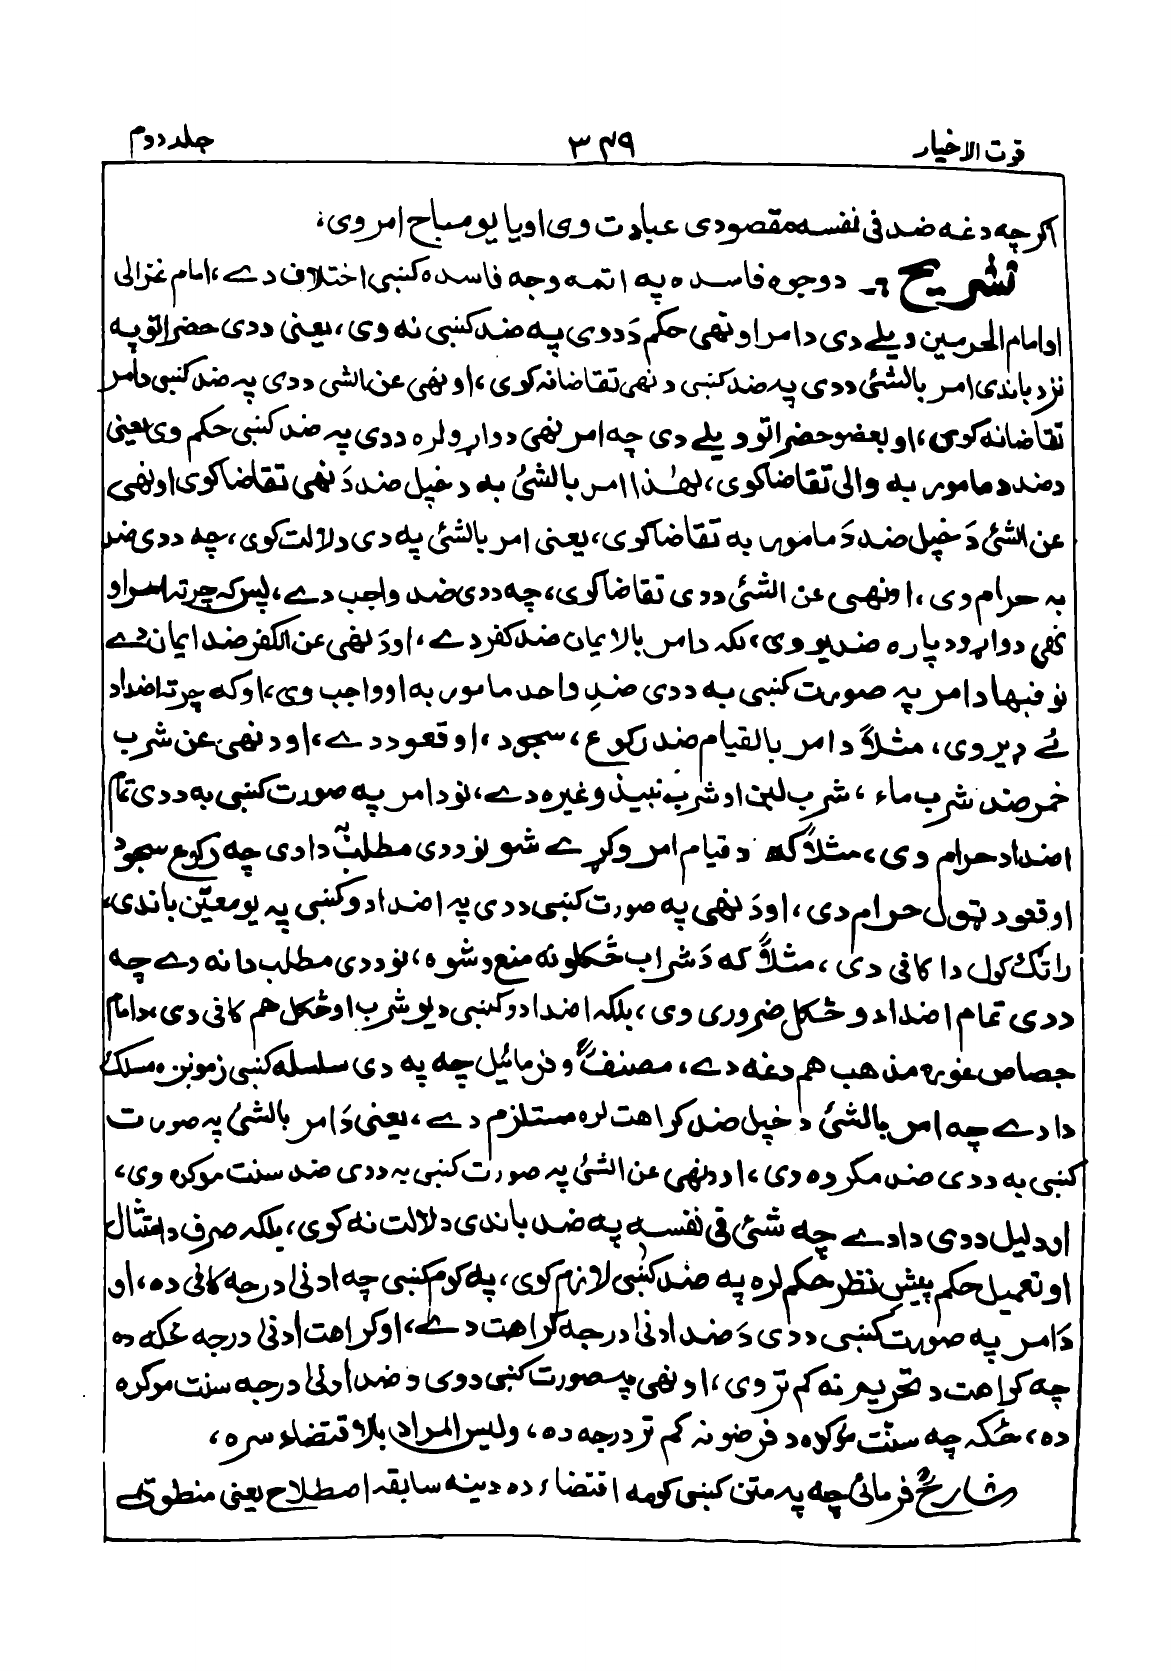 قرت الاخيار ۳۴۹ جلد دوم
اګرچه دغه ضد فی نفسه مقصودی عبادت وی او يا يو مباح امر وی،
تشريح :- د وجوه فاسده په اتمه وجه فاسده کښی اختلاف دے، امام غزالی
او امام الحرمين ويلے دی د امر او نهی حکم دَ دوی په ضد کښی نه وی، يعنی د دی حضراتو په
نزد باندی امر بالشئ د دی په ضد کښی د نهی تقاضا نه کوی، او نهی عن الشی د دی په ضد کښی د امر
تقاضا نه کوی، او بعضو حضراتو ويلے دی چه امر نهی دواړو لره د دی په ضد کښی حکم وی يعنی
د ضد د مامور به والی تقاضا کوی، لهٰذا امر بالشئ به د خپل ضد دَ نهی تقاضا کوی او نهی
عن الشئ دَ خپل ضد دَ مامور به تقاضا کوی، يعنی امر بالشئ په دی دلالت کوی، چه د دی ضد
به حرام وی، او نهی عن الشئ د دی تقاضا کوی، چه د دی ضد واجب دے، پس که چرته امر او
نهی دواړو دپاره ضد يو وی، لکه د امر بالايمان ضد کفر دے، او دَ نهی عن الکفر ضد ايمان دے
نو فبها د امر په صورت کښی به د دی ضدِ واحد مامور به او واجب وی، او که چرته اضداد
ئے ډير وی، مثلاً د امر بالقيام ضد رکوع، سجود، او قعود دے، او د نهی عن شرب
خمر ضد شرب ماء، شرب لبن او شرب نبيذ وغيره دے، نو د امر په صورت کښی به د دی تمام
اضداد حرام وی، مثلاً که د قيام امر وکړے شو نو د دی مطلب به دا دی چه رکوع سجود
او قعود ټول حرام دی، او دَ نهی په صورت کښی د دی په اضدادو کښی په يو معيّن باندی،
راتګ کول دا کافی دی، مثلاً که دَ شراب څکلو نه منع وشوه، نو د دی مطلب دا نه دے چه
د دی تمام اضدادو څکل ضروری وی، بلکه اضدادو کښی د يو شرب او څکل هم کافی دی، د امام
جصاص غوره مذهب هم دغه دے، مصنفؒ وفرمائيل چه په دی سلسله کښی زمونږه مسلک
دا دے چه امر بالشئ د خپل ضد کراهت لره مستلزم دے، يعنی دَ امر بالشئ په صورت
کښی به د دی ضد مکروه وی، او د نهی عن الشئ په صورت کښی به د دی ضد سنت موکره وی،
او دليل د دی دا دے چه شئ فی نفسه په ضد باندی دلالت نه کوی، بلکه صرف د امتثال
او تعميل حکم پيش نظر حکم لره په ضد کښی لازم کوی، په کوم کښی چه ادنیٰ درجه کافی ده، او
دَ امر په صورت کښی د دی دَ ضد ادنیٰ درجه کراهت دے، او کراهت ادنیٰ درجه ځکه ده
چه کراهت د تحريم نه کم تر وی، او نهی په صورت کښی د دی د ضد ادنیٰ درجه سنت موکره
ده، ځکه چه سنّت مؤکده د فرضو نه کم تر درجه ده، وليس المراد بالاقتضاء سره،
شارحؒ فرمائی چه په متن کښی کومه اقتضاء ده دينه سابقه اصطلاح يعنی منطوق تے